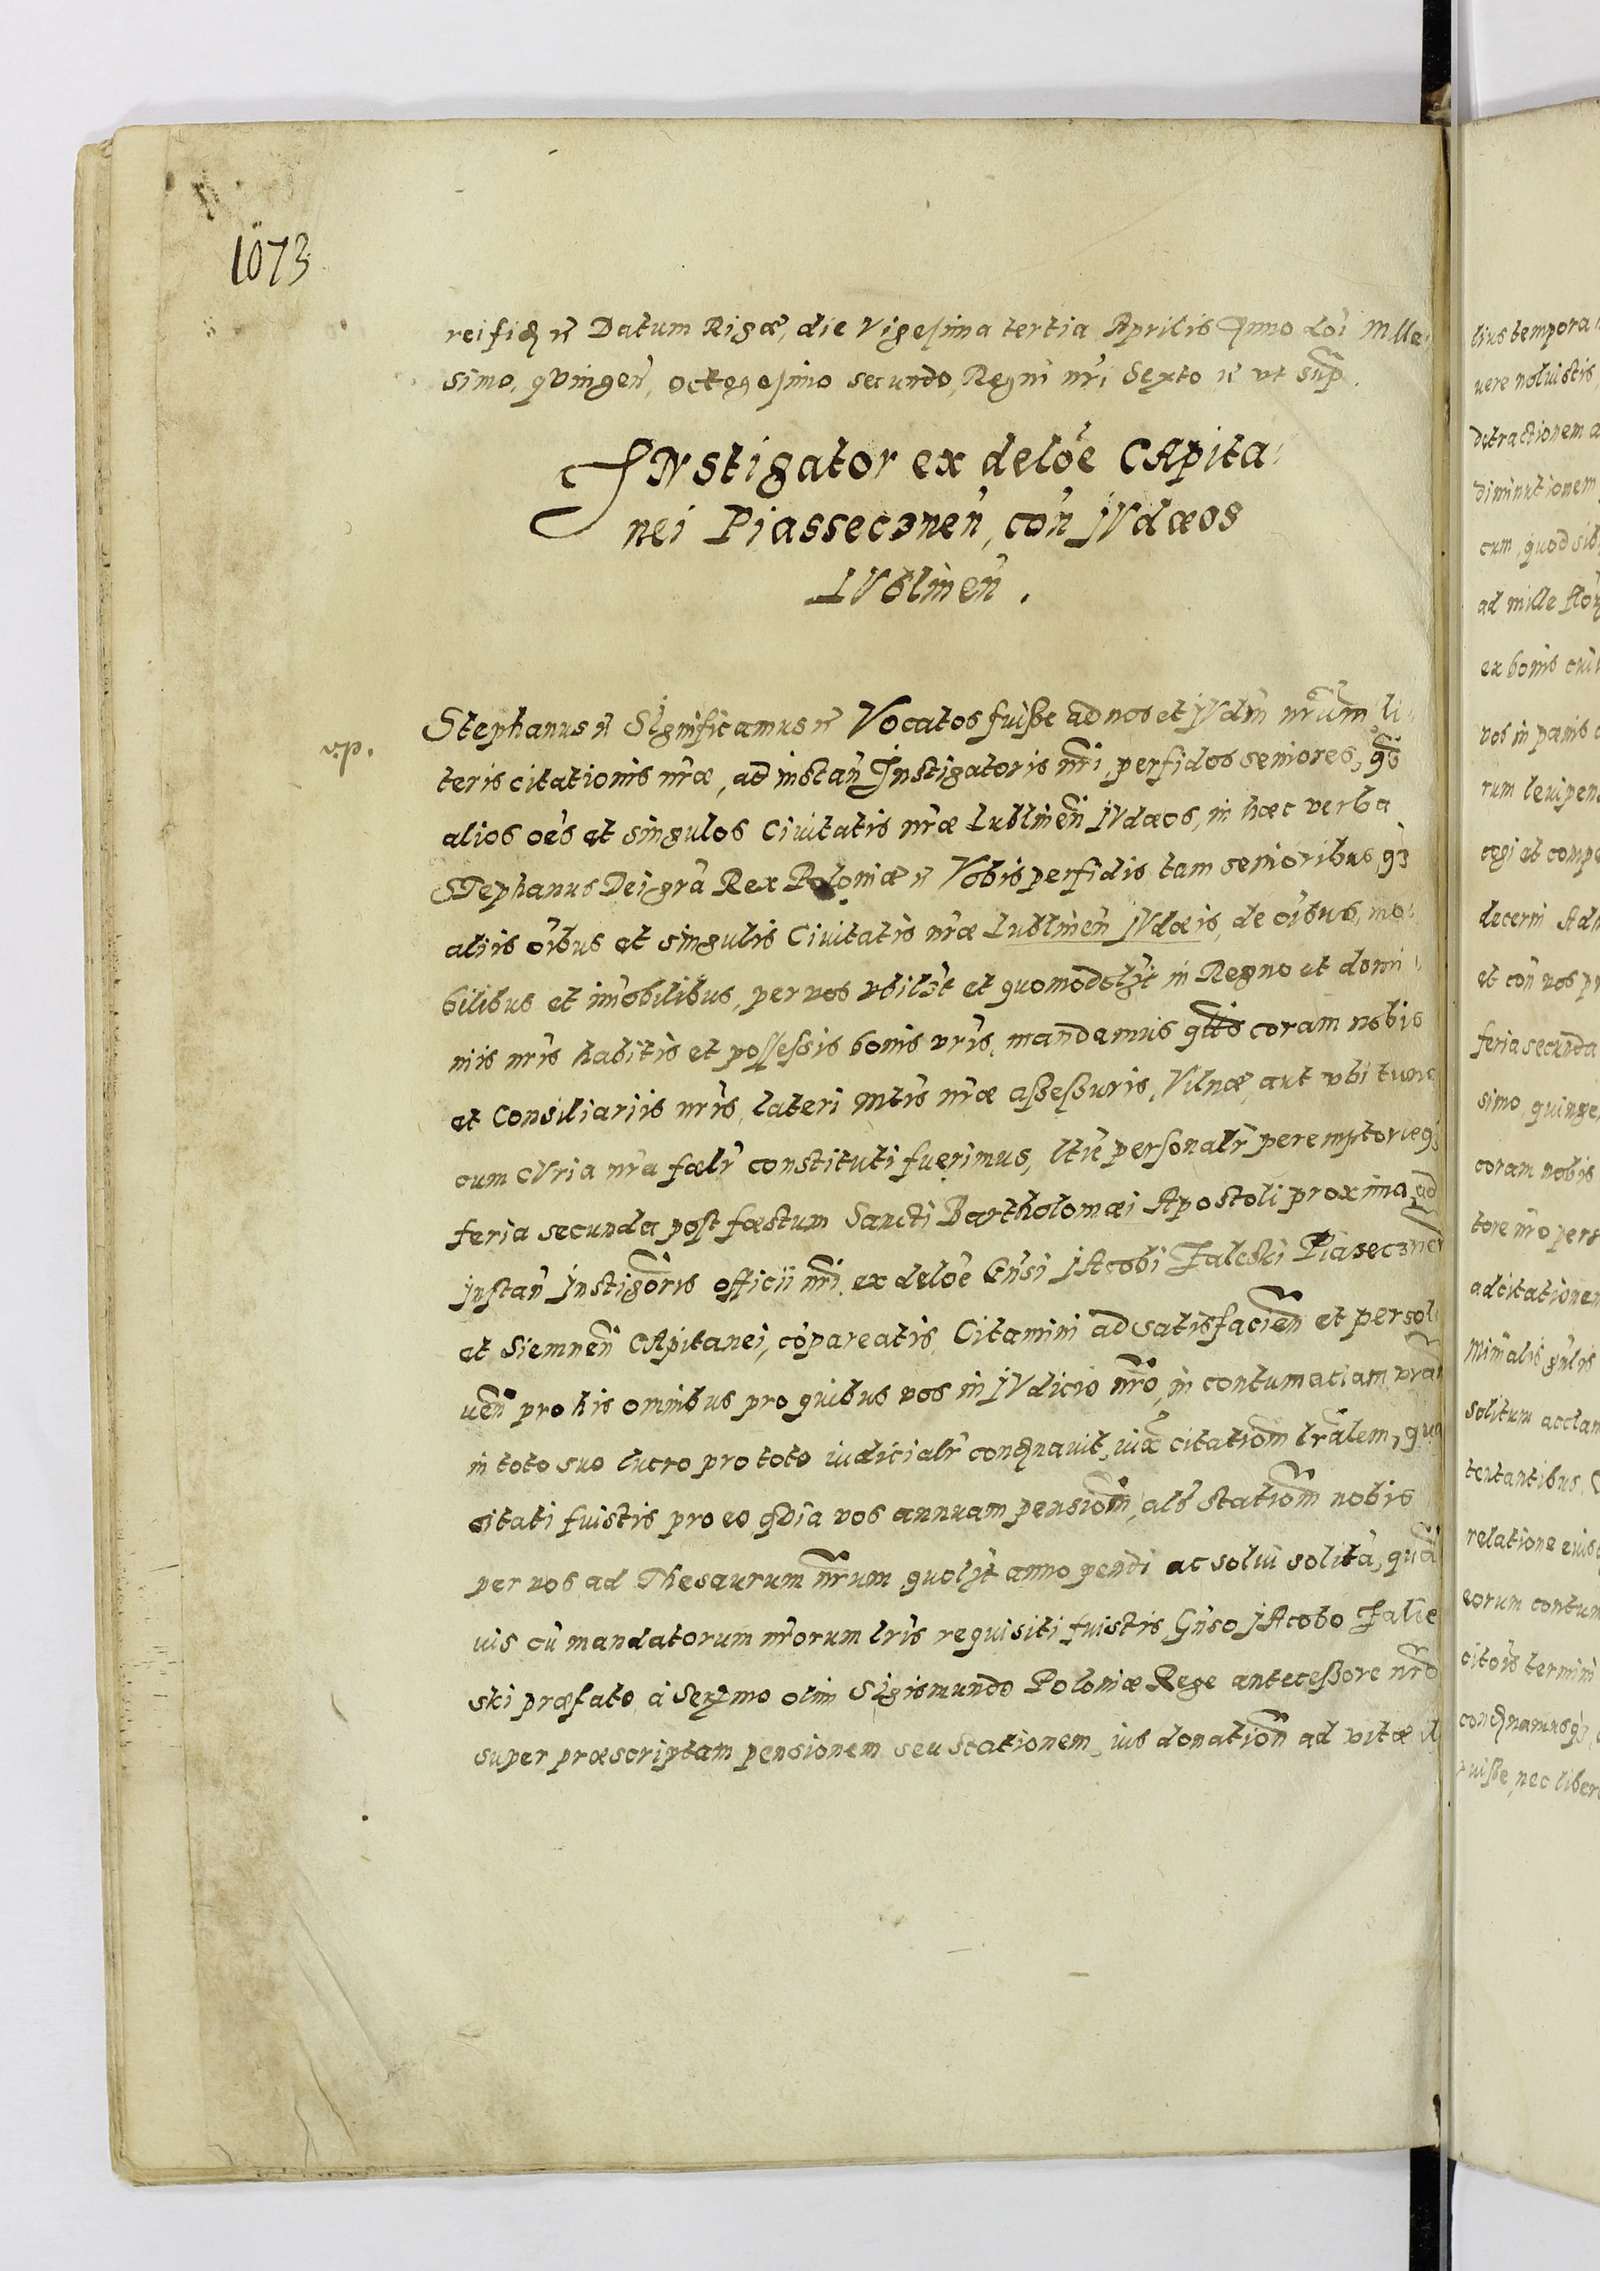 1073
reifiq rc Datum Rigæ, die Vigesima tertia Aprilis Anno dōi Mille
simo, qvingeñ, octogesimo secundo, Regni nr̄i Sexto rc vt sup̄.
Instigator ex delōe CApita:
nei Piasseczneñ, coñ JVdæos
LVblineñ.
v.p.
Stephanus rc Significamus rc Vocatos fuiße ad nos et JVdm̄ nr̄um li
teris citationis nr̄æ, ad instañ Instigatoris nr̄i, perfidos seniores, qs
alios oēs et singulos Civitatis nr̄æ Lublineñ JVdæos, in hæc verba
STephanus Dei gr̄a Rex Poloniæ rc Vobis perfidis tam senioribus q3
aliis oībus et singulis Civitatis nr̄æ Lublineñ JVdæis, de oībus, mo
bilibus et im̄obilibus, per vos vbilꝫt et quomodolꝫt in Regno et domi
niis nr̄is habitis et possessis bonis vr̄is, mandamus qtt̄s coram nobis
et Consiliariis nr̄is, lateri Mtis nr̄æ aßeßuris, Vilnæ, aut vbi tunc
cum CVria nr̄a fœlr̄ constituti fuerimus, lt̄ie personalr̄ peremptorieq3
feria secunda post fæstum Sancti Bartholomæi Apostoli proxima, ad
instañ Instigōris officii nr̄i ex delōe Gñsi JAcobi Zaleski Piaseczneñ
et Siemneñ CApitanei, cōpareatis, Citamini ad satisfacieñ et persol
ueñ pro his omnibus pro quibus vos in JVdicio nr̄o, in contumaciam vr̄am
in toto suo lucro pro toto iudicialr̄ condēnavit, iuxᵃ citatiōm lr̄alem, qua
citati fuistis pro eo qVia vos annuam pensiōm, als̄ statiōm nobis
per vos ad Thesaurum nr̄um quolꝫt anno pendi ac solui solitā, quā
uis cū mandatorum nr̄orum lr̄is requisiti fuistis, Gñso JAcobo Zalie
ski præfato, à Serꝫmo olim Sigismundo Poloniæ Rege anteceßore nr̄o
super præscriptam pensionem seu stationem, ius donatiōm ad vitæ il
lius tempora
uere noluistis,
detractionem a
diminutionem
cum, quod sib
ad mille flor̄
ex bonis
vos in pænis
rum levipen
cogi et compe
decerni
et coñ vos pr
feria secunda
simo, quinge
coram nobis
tore nr̄o pers
ad citationem
Minālis
Solitum acclam
tentantibus,
relatione eius
eorum contum
citōis termini
condēnamus q3
uiße, nec libere